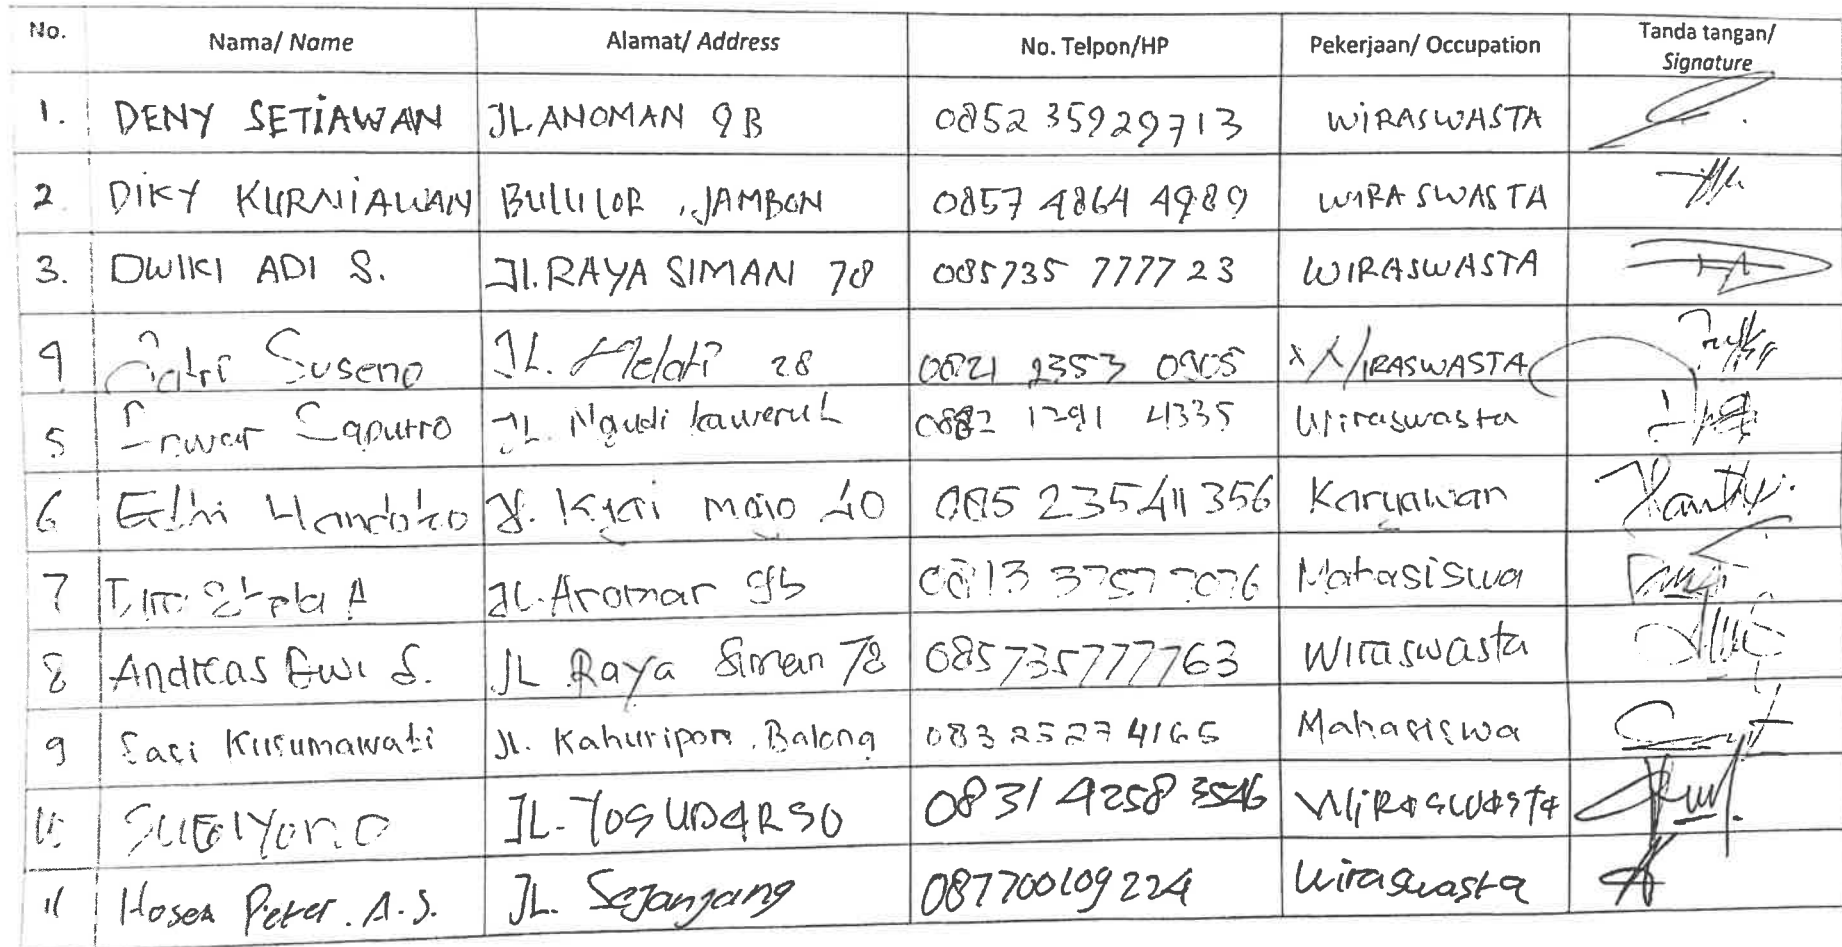 No. Nama/ Name Alamat/ Address No. Telpon/HP Pekerjaan/ Occupation Tanda tangan/ Signature
1. DENY SETIAWAN JL ANOMAN 9B 0852 35929713 WIRASWASTA
2. DIKY KURNIAWAN BULU LOR , JAMBON 0857 4864 4989 WIRASWASTA
3. DWIKI ADI S. Jl. RAYA SIMAN 78 085735 777723 WIRASWASTA
4 Suseno JL. Melati 28 0821 2353 WIRASWASTA
5 Saputro JL. Ngudi kaweruh 1291 4335 Wiraswasta
6 Edhi Handoko Jl. Kyai mojo 40 085 235411356 Karyawan
7 A JL. Anoman 9b 0813 Mahasiswa
8 Andreas Dwi S. JL Raya Siman 78 085735777763 Wiraswasta
9 Sari Kusumawati Jl. Kahuripan. Balong 083 25274165 Mahasiswa
10 JL. YOS UDARSO 0831 4258 3546 WIRASWASTA
11 Hosea Peter. A.S. JL. 087700109224 Wiraswasta